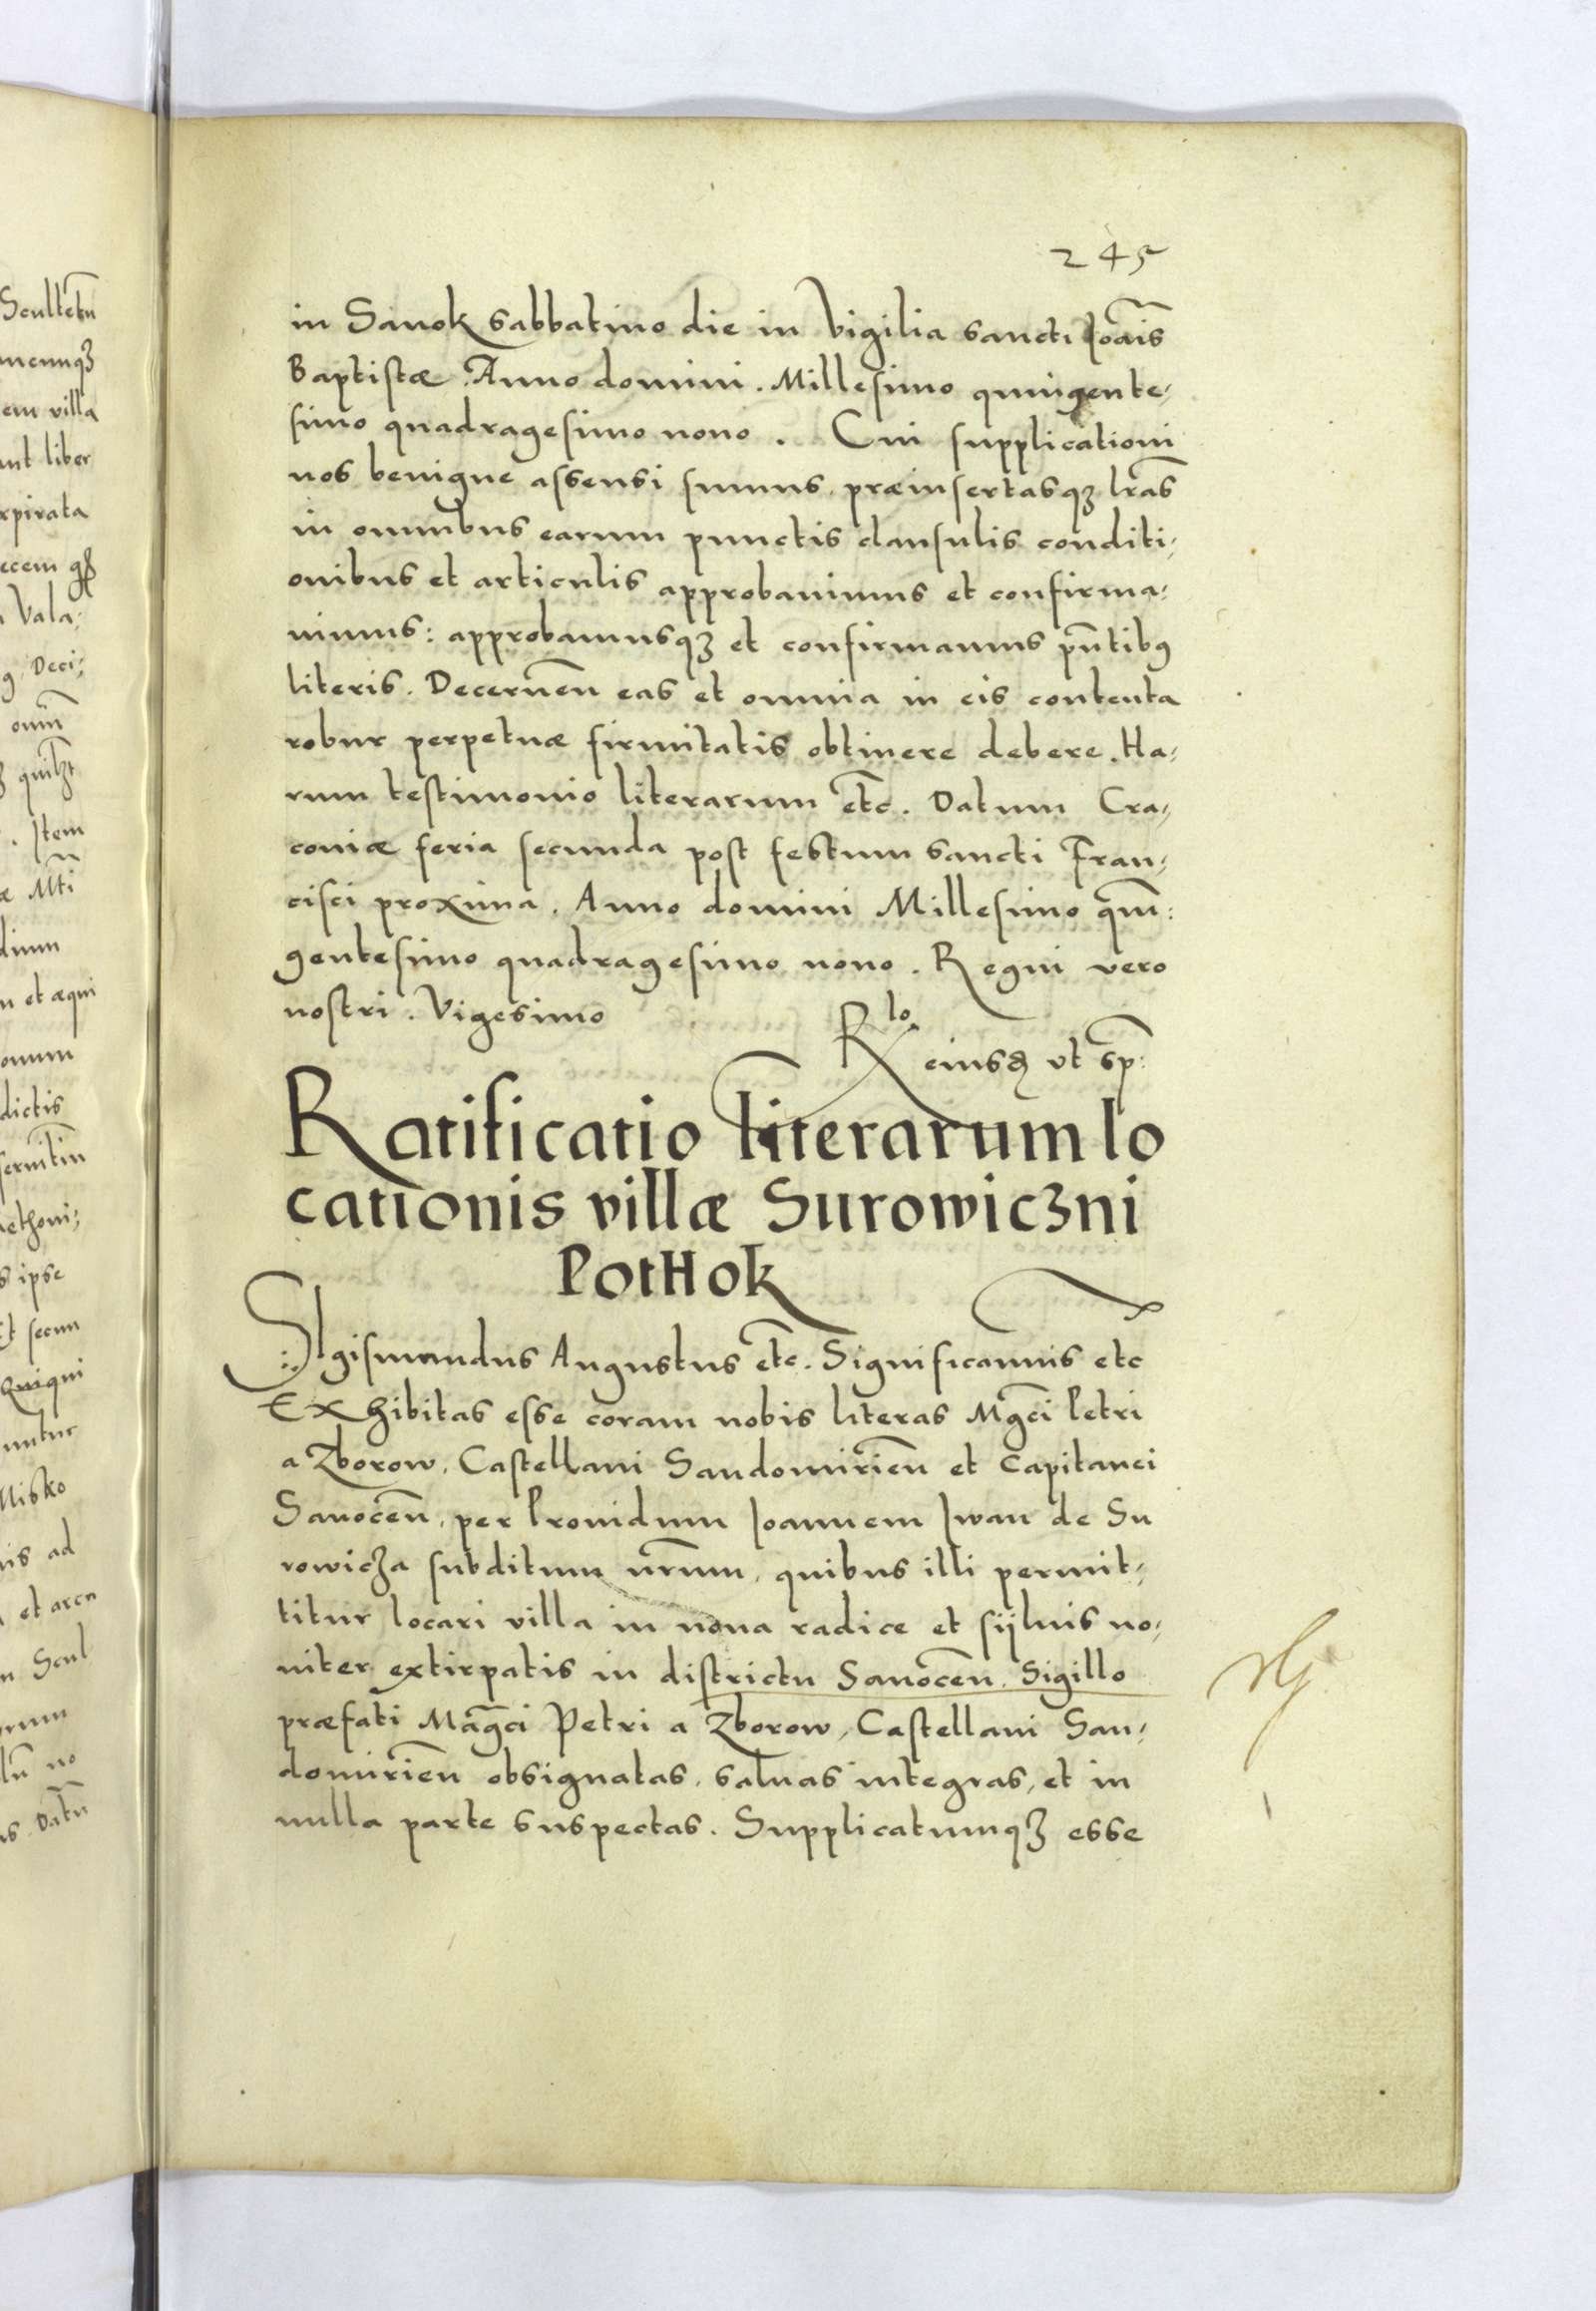 245
in Sanok sabbatino die in Vigilia sancti Joãis
Baptistæ. Anno domini. Millesimo quingente,
simo quadragesimo nono. Cui supplicationi
nos benigne assensi sumus, præinsertasqȝ lr̃as
in omnibus earum punctis clausulis conditi,
onibus et articulis approbauimus et confirma,
uimus: approbamusqȝ et confirmamus pñtibꝰ
literis. Decerneñ eas et omnia in eis contenta
robur perpetuæ firmitatis obtinere debere. Ha,
rum testimonio literarum etc̃. Datum Cra,
couiæ feria secunda post festum sancti Fran,
cisci proxima. Anno domini Millesimo quin̄:
gentesimo quadragesimo nono. Regni vero
nostri. Vigesimo
Rlo eiusdē vt sp̃:
Ratificatio literarum lo
cationis villæ Surowicȝni
Potthok
Sigismundus Augustus etc̃. Significamus etc
Exhibitas esse coram nobis literas Mgc̃i Petri
a Zborow, Castellani Sandomirieñ et Capitanei
Sanoceñ, per Prouidum Joannem Jwan de Su
rowicȝa subditum nr̃um, quibus illi permit,
titur locari villa in noua radice et sijluis no,
uiter extirpatis in districtu Sanoceñ. Sigillo
præfati Magc̃i Petri a Zborow, Castellani San,
domirieñ obsignatas, saluas integras, et in
nulla parte suspectas. Supplicatumqȝ esse
Scultetũ
em villa
liber
Vala,
Deci,
Item
Mti
et æqui
dictis
ipse
secun
Misko
ad
et
Scul
no
Datũ